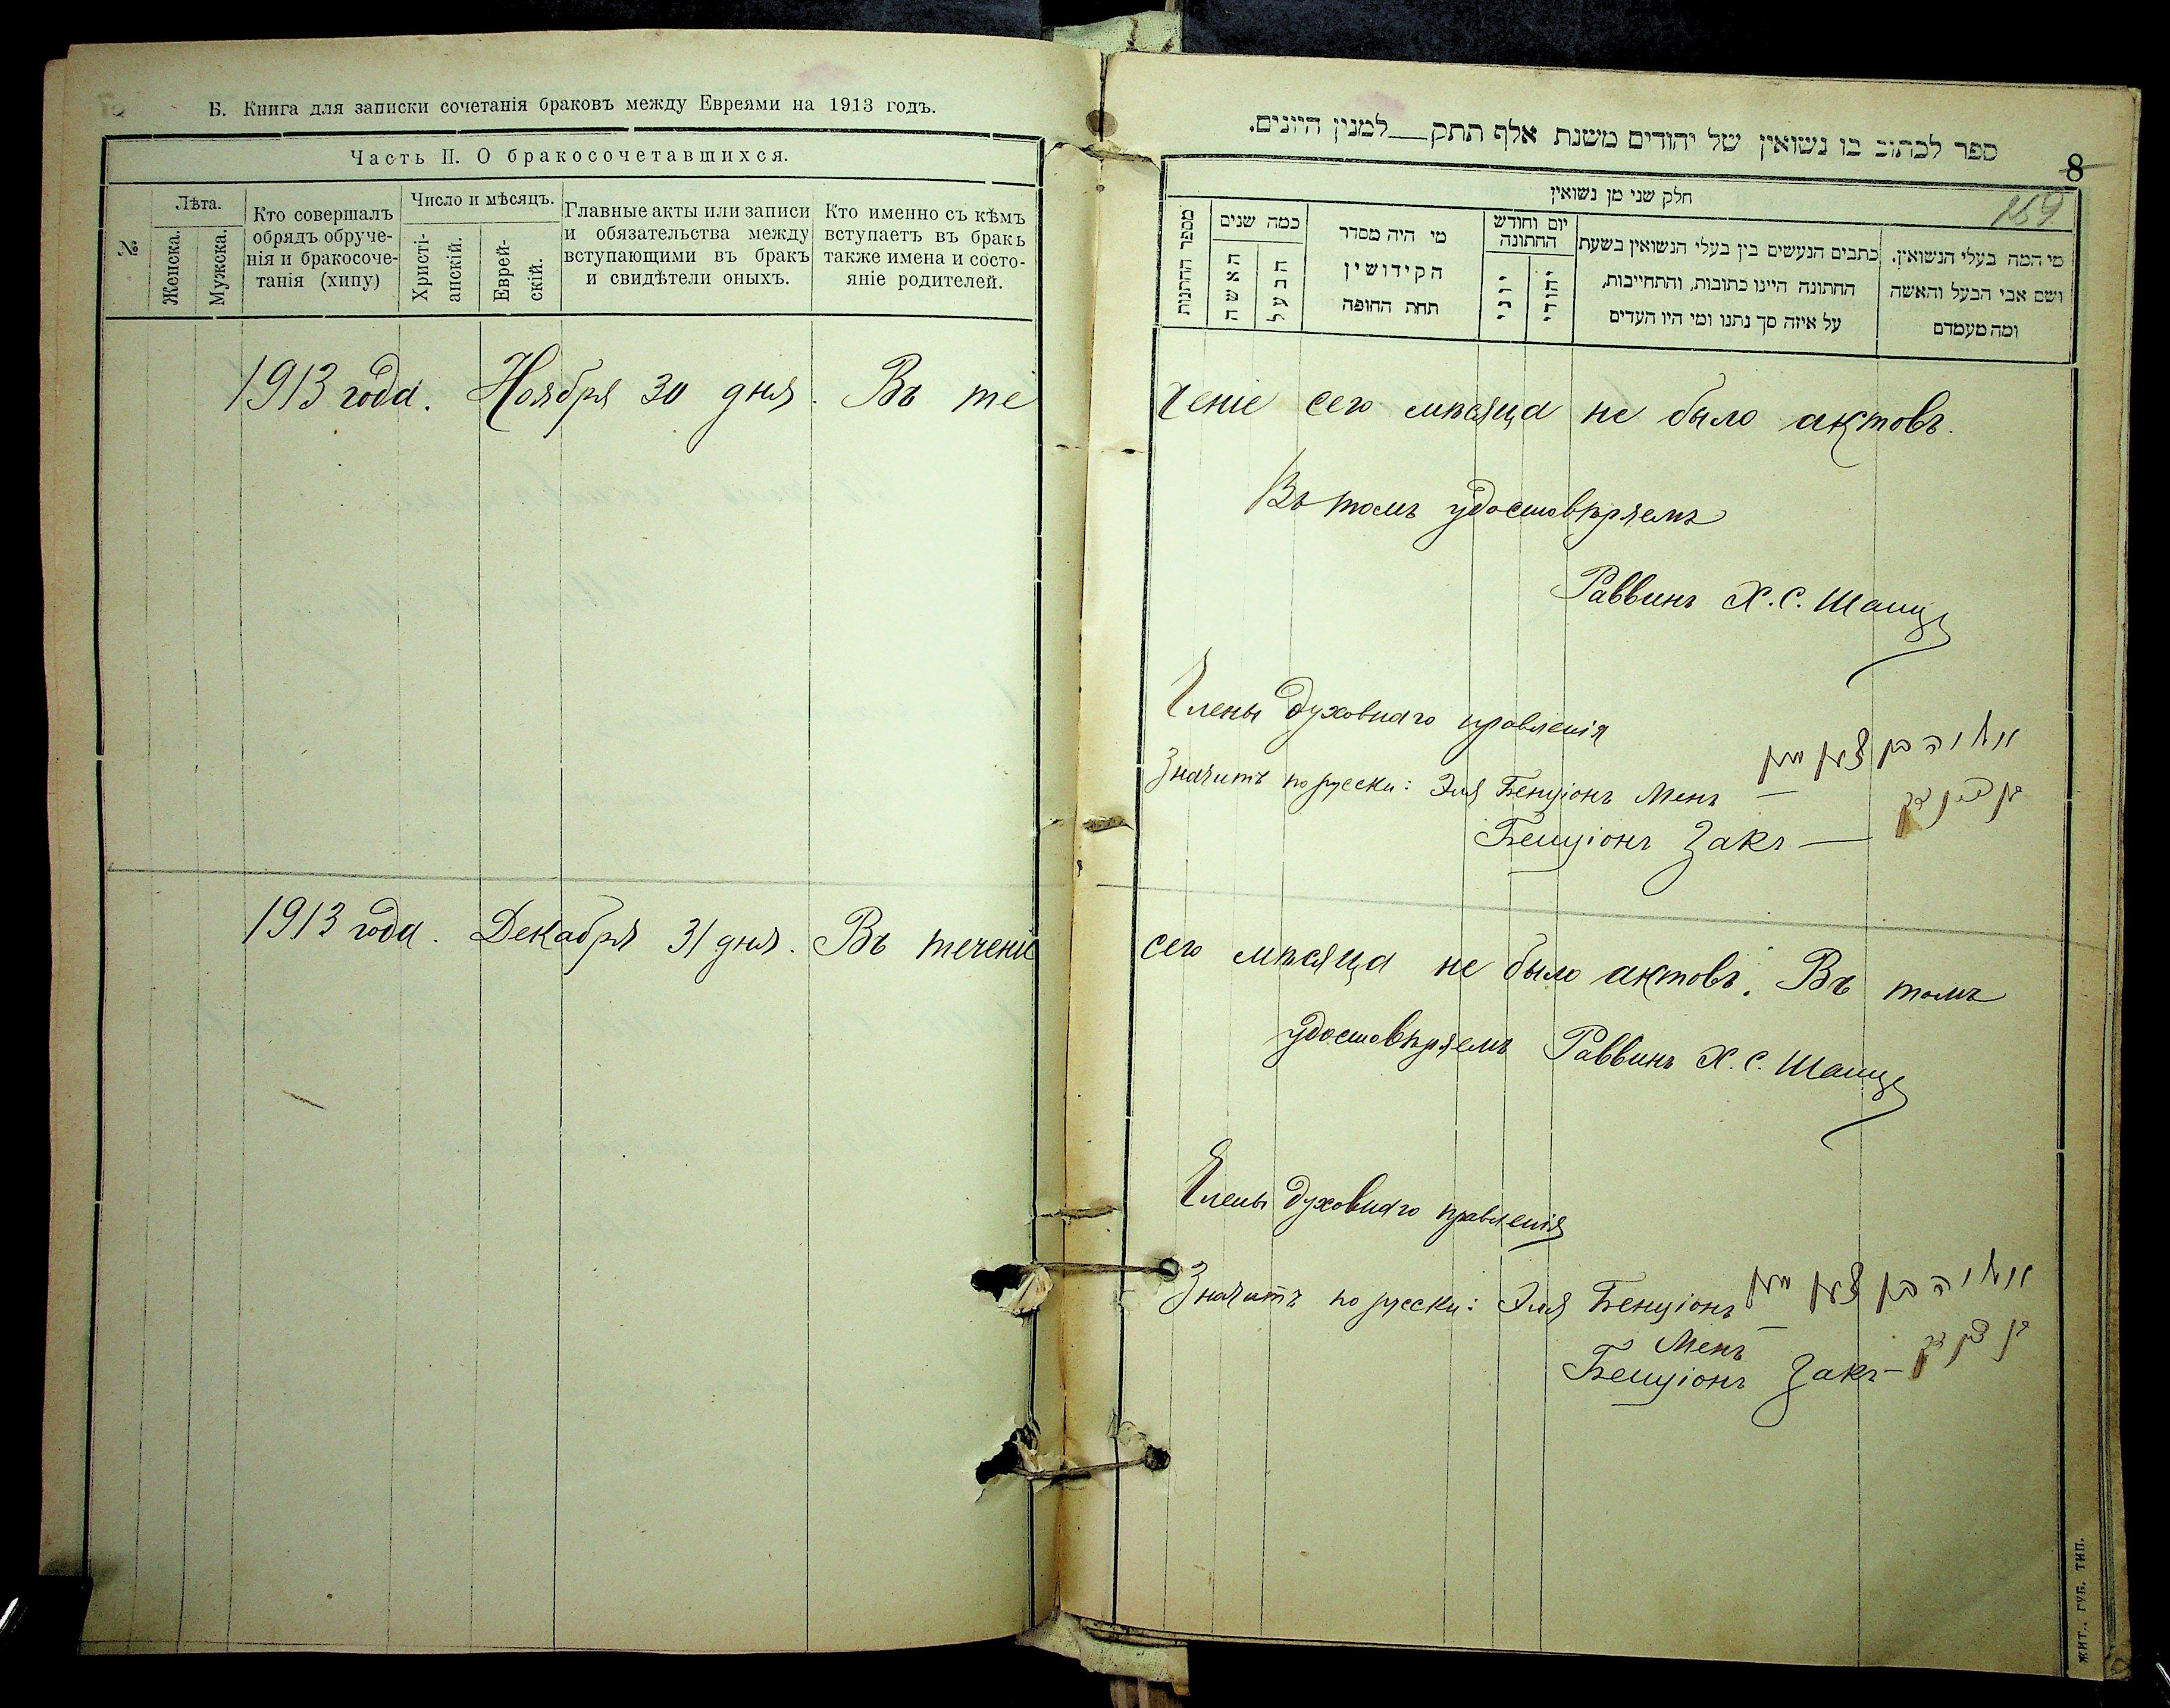 Б. Книга для записки сочетанія браковъ между Евреями на 1913 годъ.
Часть II. О бракосочетавшихся.
№
Лѣта.
Женска.
Мужска.
Кто совершалъ
обрядъ обруче-
нія и бракосоче-
танія (хипу)
Число и мѣсяцъ.
Христі-
анскій.
Еврей-
скій.
Главные акты или записи
и обязательства между
вступающими въ бракъ
и свидѣтели оныхъ.
Кто именно съ кѣмъ
вступаетъ въ бракъ
также имена и состо-
яніе родителей.
1913 года. Ноября 30 дня. Въ те
1913 года. Декабря 31 дня. Въ теченіе
ספר לכתוב בו נשואין של יהודים משנת אלף תתק—למנין היונים.
8
159
חלק שני מן נשואין
מי המה בעלי הנשואין.
ושם אבי הבעל והאשה
ומה מעמדם
כתבים הנעשים בין בעלי הנשואין בשעת
החתונה היינו כתובות, והתחייבות,
על איזה סך נתנו ומי היו העדים
יום וחודש
החתונה
יהודי
יוני
מי היה מסדר
הקידושין
תחת החופה
כמה שנים
הבעל
האשה
מספר החתונות
ченіе сего мѣсяца не было актовъ.
Въ томъ удостовѣряемъ
Раввинъ Х. С.
Члены духовнаго правленія
Значитъ по русски: Эля Бенціонъ Менъ —
אליהו בן ציון מען
Бенціонъ Закъ —
בן ציון זק
сего мѣсяца не было актовъ. Въ томъ
удостовѣряемъ Раввинъ Х. С.
Члены духовнаго правленія
Значитъ по русски: Эля Бенціонъ
Менъ —
אליהו בן ציון מען
Бенціонъ Закъ —
בן ציון זק
ЖИТ., ГУБ. ТИП.